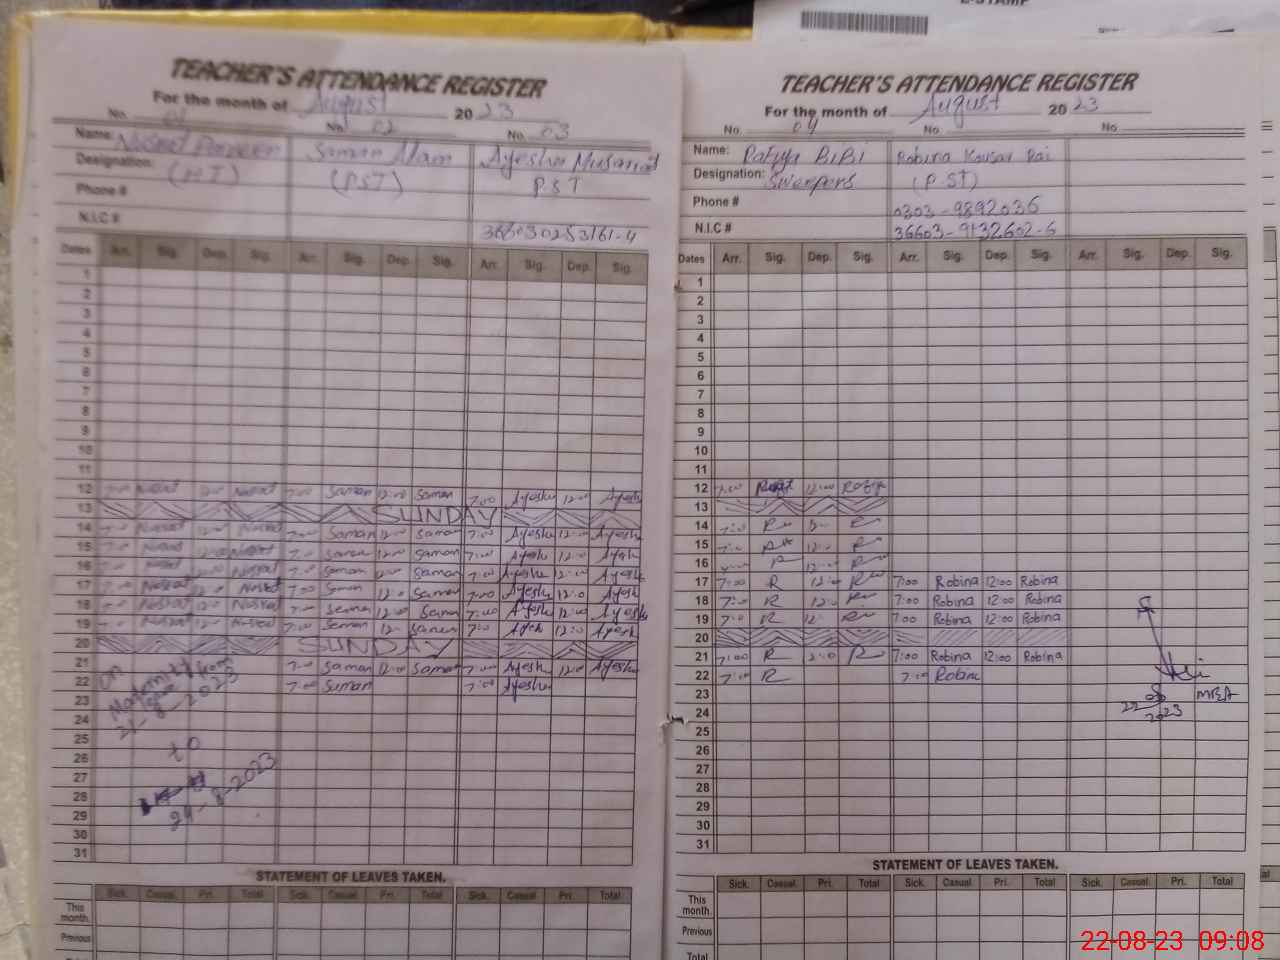 E-STAMP
TEACHER'S ATTENDANCE REGISTER
For the month of August 2023
No. 01 No. 02 No. 03
Name: Nusrat Parveen Saman Alam Ayesha Musarat
Designation: (PST) PST
Phone #
N.I.C # 366030253161-4
Dates Arr. Sig. Dep. Sig. Arr. Sig. Dep. Sig. Arr. Sig. Dep. Sig.
1
2
3
4
5
6
7
8
9
10
11
12 7:00 Nusrat 12:00 Nusrat 7:00 Saman 12:00 Saman 7:00 Ayesha 12:00 Ayesha
13 SUNDAY
14 7:00 Nusrat 12:00 Nusrat 7:00 Saman 12:00 Saman 7:00 Ayesha 12:00 Ayesha
15 7:00 Nusrat 12:00 Nusrat 7:00 Saman 12:00 Saman 7:00 Ayesh 12:00 Ayesh
16 7:00 Nusrat 12:00 Nusrat 7:00 Saman 12:00 Saman 7:00 Ayesha 12:00 Ayesha
17 7:00 Nusrat 12:00 Nusrat 7:00 Saman 12:00 Saman 7:00 Ayesha 12:0 Ayesh
18 7:00 Nusrat 12:00 Nusrat 7:00 Saman 12:00 Saman 7:00 Ayesha 12:00 Ayesha
19 7:00 Nusrat 12:00 Nusrat 7:00 Saman 12:00 Saman 7:00 Ayesh 12:0 Ayesh
20 SUNDAY
21 7:00 Saman 12:00 Saman 7:00 Ayesha 12:00 Ayesha
22 7:00 Saman 7:00 Ayesha
23
24
25
26
27
28
29
30
31
on
from
21-8-2023
to
29-8-2023
STATEMENT OF LEAVES TAKEN.
Sick. Casual. Pri. Total Sick. Casual. Pri. Total Sick. Casual. Pri. Total
This month.
Previous
TEACHER'S ATTENDANCE REGISTER
For the month of August 2023
No. 04 No. No.
Name: BiBi Robina Kousar Rai
Designation: Sweepers (PST)
Phone # 0303-9892036
N.I.C # 36603-9132602-6
Dates Arr. Sig. Dep. Sig. Arr. Sig. Dep. Sig. Arr. Sig. Dep. Sig.
1
2
3
4
5
6
7
8
9
10
11
12 7:00 12:00
13
14 7:00 R 12:00 R
15 7:00 12:00 R
16 R 12:00 R
17 7:00 R 12:00 R 7:00 Robina 12:00 Robina
18 7:00 R 12:00 R 7:00 Robina 12:00 Robina
19 7:00 R 12: R 7:00 Robina 12:00 Robina
20
21 7:00 R 12:00 R 7:00 Robina 12:00 Robina
22 7:00 R 7:00 Robina
23 MEA
24 22-08-2023
25
26
27
28
29
30
31
STATEMENT OF LEAVES TAKEN.
Sick. Casual. Pri. Total Sick. Casual. Pri. Total Sick. Casual. Pri. Total
This month.
Previous
Total
22-08-23 09:08